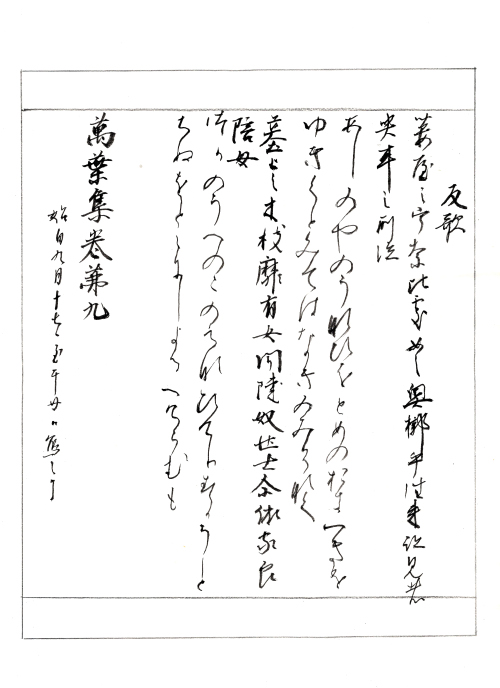 反歌
葦屋之宇奈比處女之奥槨乎徃来跡見者
哭耳之所泣
あしのやのうなひをとめのおきつきを
ゆきくとみてはなきのみそなく
墓上之木枝靡有如聞陳奴壮士尓依家良
陪母
つかのうへのこのえなひけりきゝしこと
ちぬをとこにしよるへけらむも
萬葉集巻第九
始自九月十七至于廿日